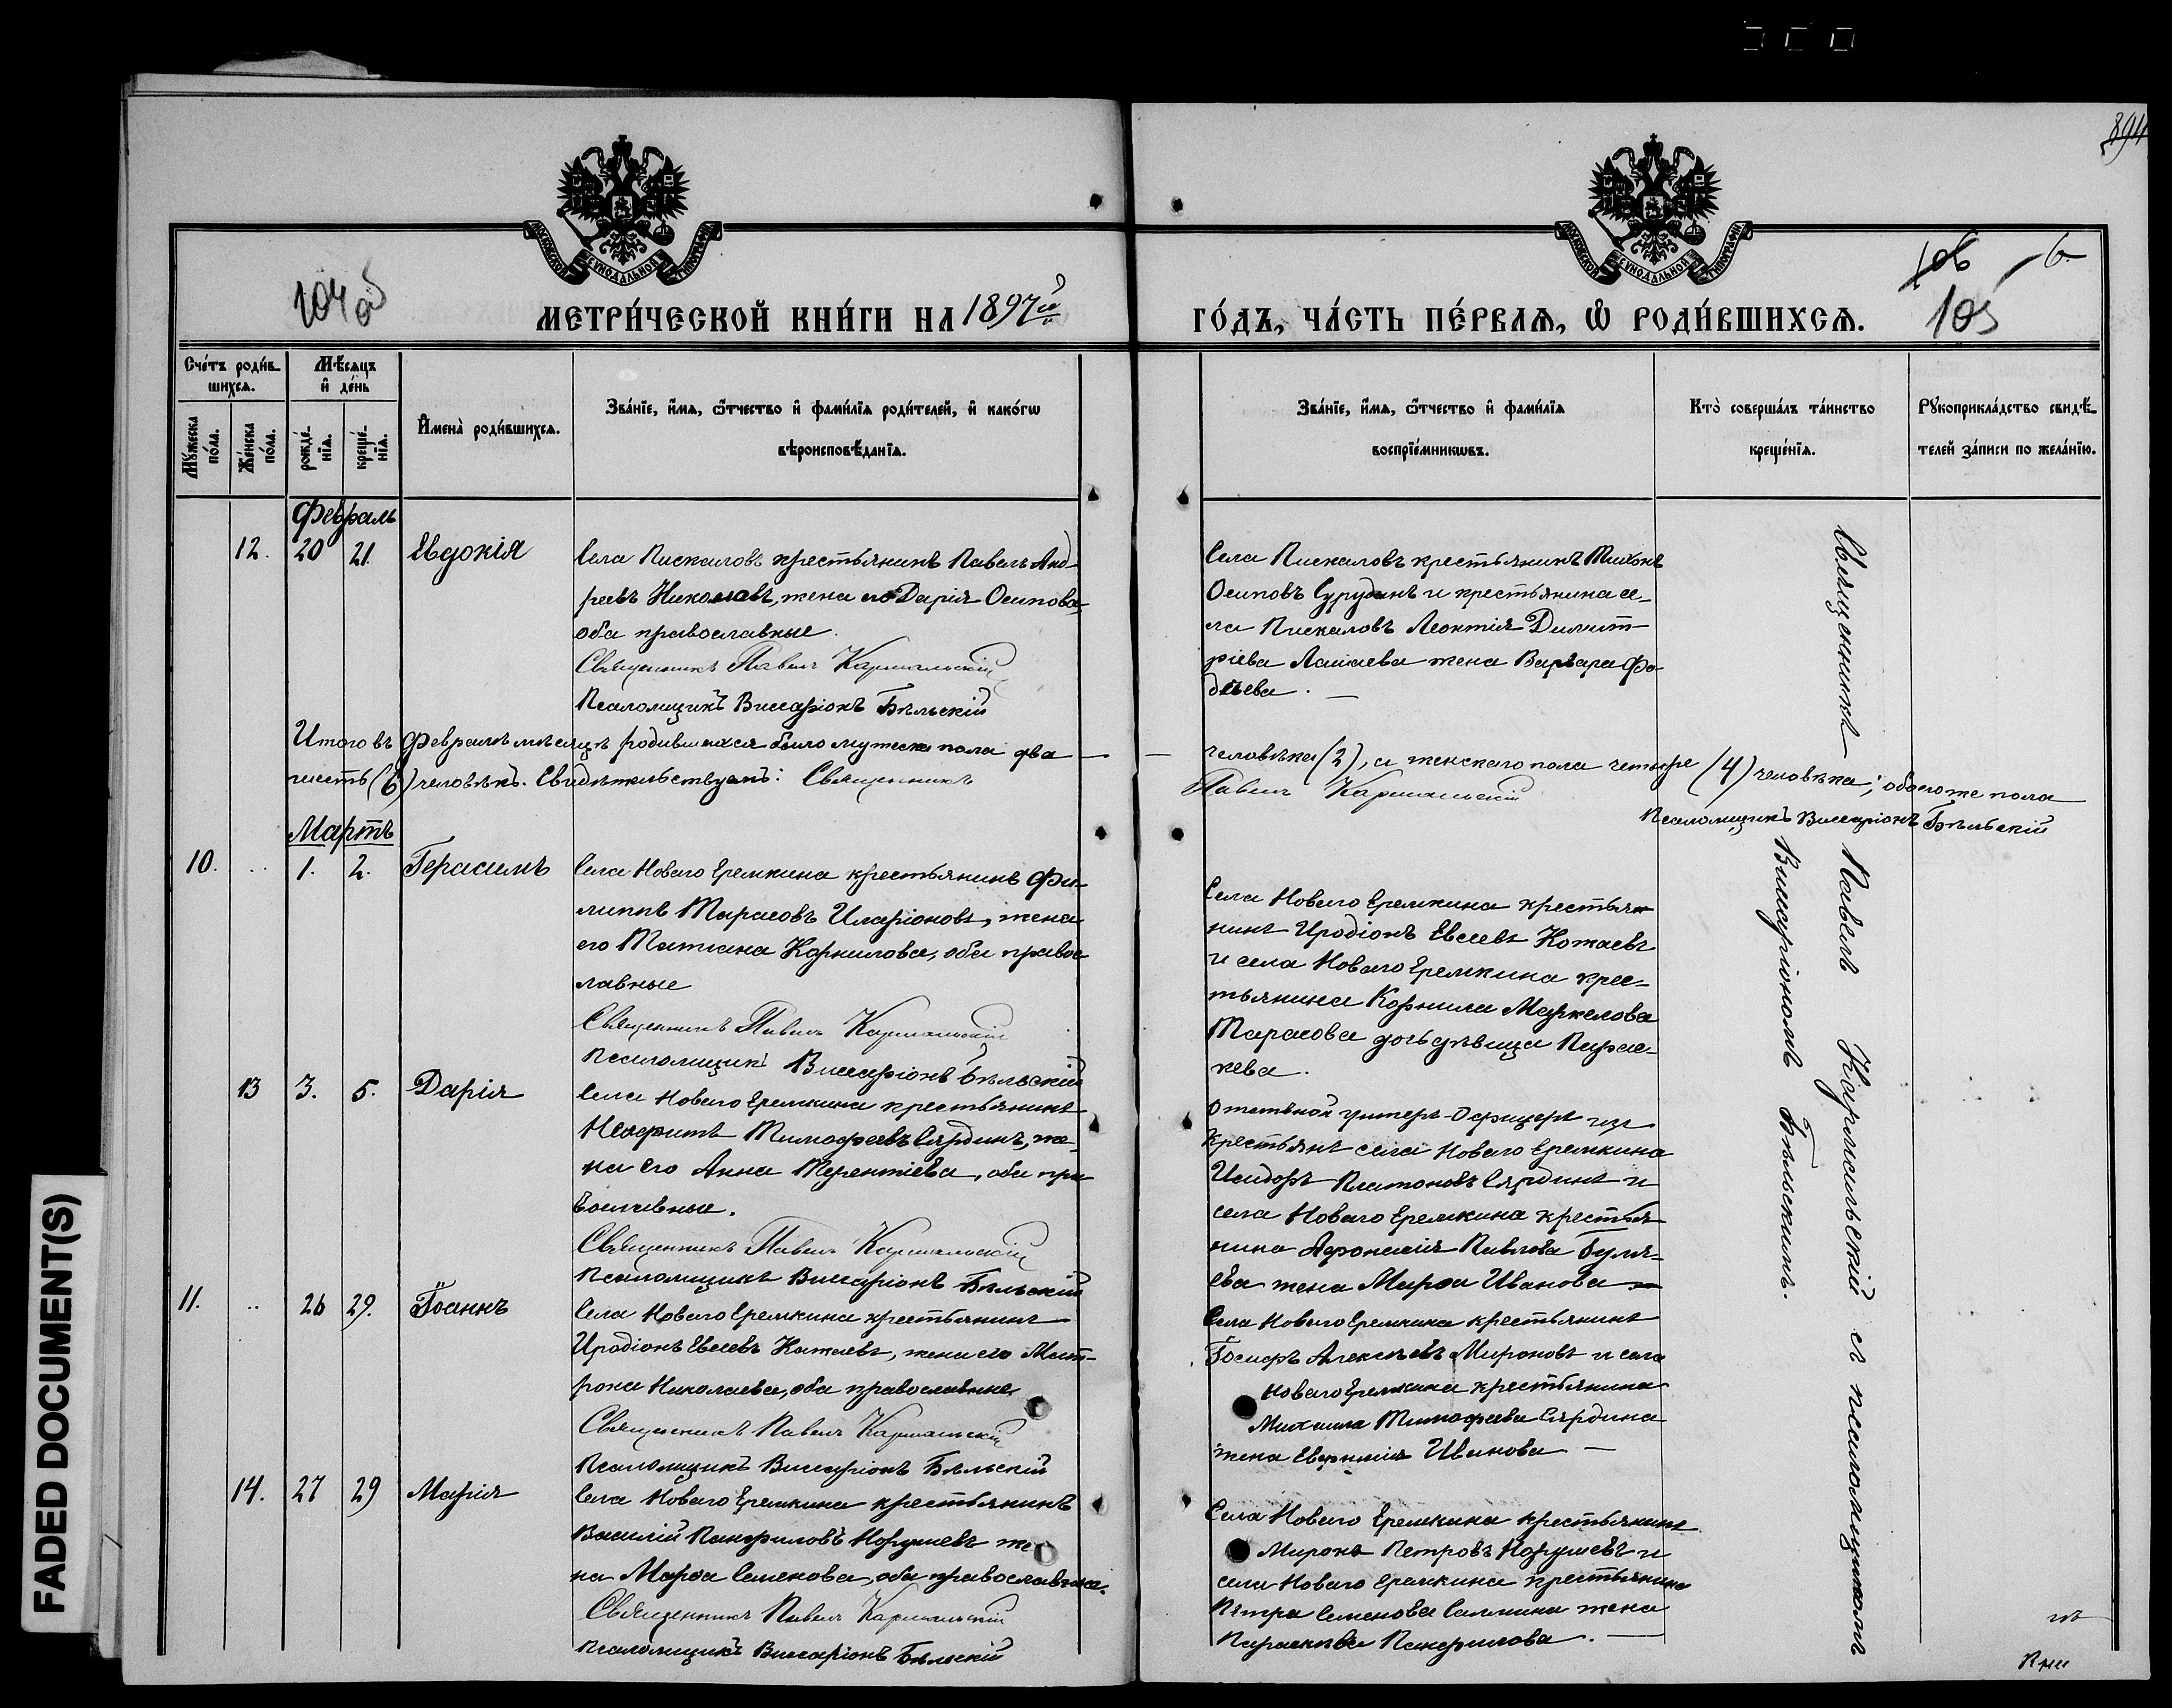 894
104 об
106
105
6
МОСКОВСКОЙ СУНОДАЛЬНОЙ ТИПОГРАФІИ
МОСКОВСКОЙ СУНОДАЛЬНОЙ ТИПОГРАФІИ
МЕТРИ́ЧЕСКОЙ КНИ́ГИ НА 1897й ГО́ДЪ, ЧА́СТЬ ПЕ́РВАѦ, Ѽ РОДИ́ВШИХСѦ.
Сче́тъ роди́в-
шихсѧ.
Мѣ́сѧцъ
и҆ де́нь
Му́жеска по́ла.
Же́нска по́ла.
рожде́-нїѧ.
креще́-нїѧ.
И҆мена̀ роди́вшихсѧ.
Зва́нїе, и҆́мѧ, ѻ҆́тчество и҆ фами́лїѧ роди́телей, и҆ како́гѡ
вѣроисповѣ́данїѧ.
Зва́нїе, и҆́мѧ, ѻ҆́тчество и҆ фами́лїѧ
воспрїе́мникѡвъ.
Кто̀ соверша́лъ та́инство
креще́нїѧ.
Рꙋкоприкла́дство свидѣ́-
телей за́писи по жела́нїю.
Февраль
12. 20 21. Евдокія
Села Пискаловъ крестьянинъ Павелъ Анд-
реевъ Николаевъ, жена его Дарія Осипова,
оба православные.
Священникъ Павелъ Кармальскій
Псаломщикъ Виссаріонъ Бѣльскій
Села Пискаловъ крестьянинъ Тихонъ
Осиповъ Сурудинъ и крестьянина се-
ла Пискаловъ Леонтія Димит-
ріева Лашаева жена Варвара Фа-
дѣева.
Итого въ Февралѣ мѣсяцѣ родившихся было мужеска пола два — человѣка (2), а женскаго пола четыре (4) человѣка; обоего же пола
шесть (6) человѣкъ. Свидѣтельствуемъ: Священникъ Павелъ Кармальскій
Псаломщикъ Виссаріонъ Бѣльскій
Мартъ
10. .. 1. 2. Герасимъ
Села Новаго Еремкина крестьянинъ Фи-
липпъ Тарасовъ Иларіоновъ, жена
его Татиана Корнилова, оба правос
лавные
Священникъ Павелъ Кармальскій
Псаломщикъ Виссаріонъ Бѣльскій
Села Новаго Еремкина крестья-
нинъ Иродіонъ Евсеевъ Котаевъ
и села Новаго Еремкина крес-
тьянина Корнила Маркелова
Тарасова дочь дѣвица Парас-
кева.
13 3. 5. Дарія
Села Новаго Еремкина крестьянинъ
Неофитъ Тимофеевъ Сярдинъ, же-
на его Анна Терентіева, оба пра
вославные.
Священникъ Павелъ Кармальскій
Псаломщикъ Виссаріонъ Бѣльскій
Отставной унтеръ-Офицеръ изъ
крестьянъ села Новаго Еремкина
Исидоръ Платоновъ Сярдинъ и
села Новаго Еремкина крестья
нина Афонасія Павлова Буля-
ева жена Марфа Иванова
11. .. 26 29. Іоаннъ
Села Новаго Еремкина крестьянинъ
Иродіонъ Евсеевъ Катаевъ, жена его Мат-
рона Николаева, оба православные
Священникъ Павелъ Кармальскій
Псаломщикъ Виссаріонъ Бѣльскій
Села Новаго Еремкина крестьянинъ
Іосифъ Алексѣевъ Мироновъ и села
Новаго Еремкина крестьянина
Михаила Тимофеева Сярдина
жена Евфимія Иванова —
14. 27 29 Марія
Села Новаго Еремкина крестьянинъ
Василій Панфиловъ Норушевъ же
на Марфа Семенова, оба православные.
Священникъ Павелъ Кармальскій
Псаломщикъ Виссаріонъ Бѣльскій
Села Новаго Еремкина крестьянинъ
Миронъ Петровъ Норушевъ и
села Новаго Еремкина крестьянина
Петра Семенова Салмина жена
Параскева Панфилова. —
Священникъ Павелъ Кармальскій съ псаломщикомъ
Виссаріономъ Бѣльскимъ.
FADED DOCUMENT(S)